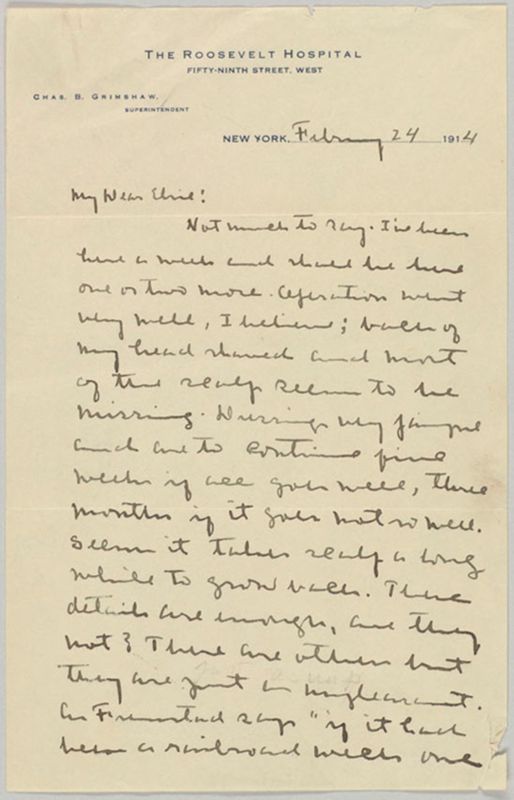 THE ROOSEVELT HOSPITAL
FIFTY-NINTH STREET, WEST
CHAS. B. GRIMSHAW,
SUPERINTENDENT
NEW YORK, February 24 1914
My Dear Elsie!
Not much to say. I've been
here a week and shall be here
one or two more. Operation went
very well, I believe; back of
my head shaved and most
of the scalp seems to be
missing. Dressings very
and are to continue five
weeks if all goes well, three
months if it goes not so well.
Seems it takes scalp a long
while to grow back. These
details are enough, are they
not? There are others but
they are just as unpleasant.
As Fremstad says "if it had
been a railroad wreck one